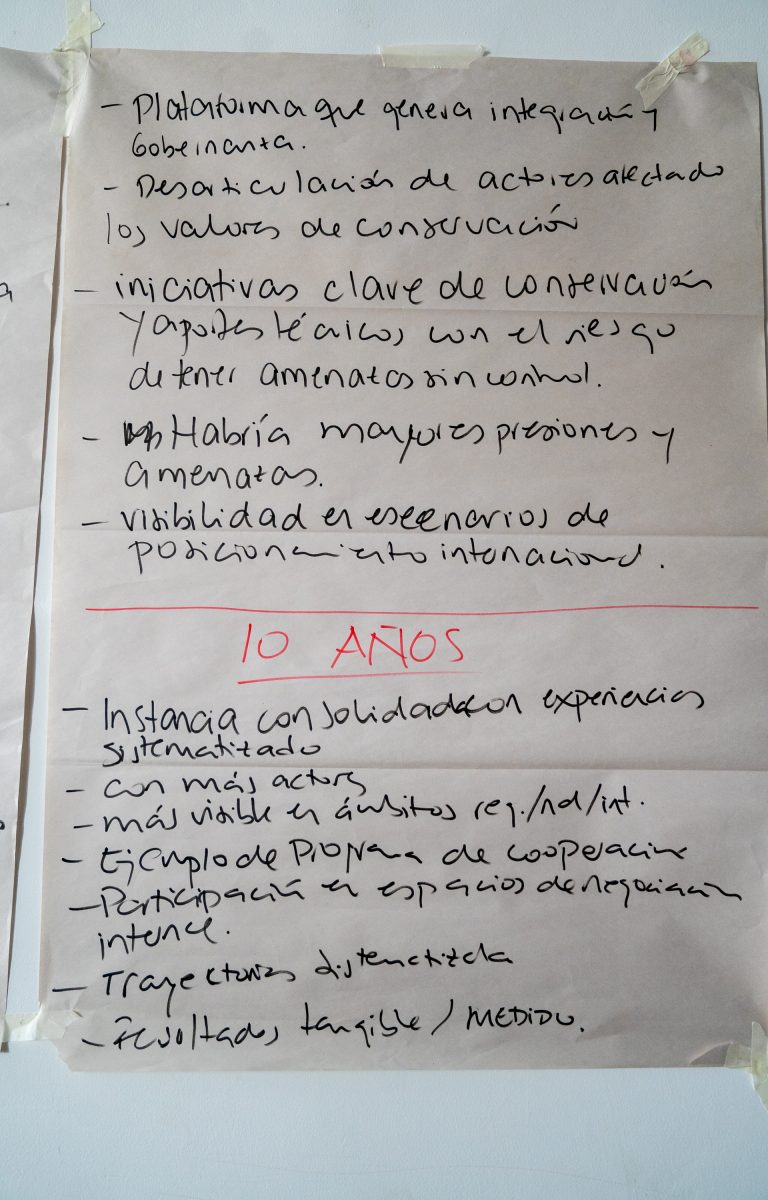 - Plataforma que genera integración y
Gobernanza.
- Desarticulación de actores afectado
los valores de conservación
- iniciativas clave de conservación
y aportes técnicos con el riesgo
de tener amenazas sin control.
- Habría mayores presiones y
amenazas.
- visibilidad en escenarios de
posicionamiento internacional.
10 AÑOS
- Instancia consolidada con experiencias
sistematizado
- con más actores
- más visible en ámbitos reg./nal/int.
- Ejemplo de Programa de cooperación
- Participación en espacios de negociación
intence.
- Trayectorias sistematizada
- Resultados tangible / MEDIDO.